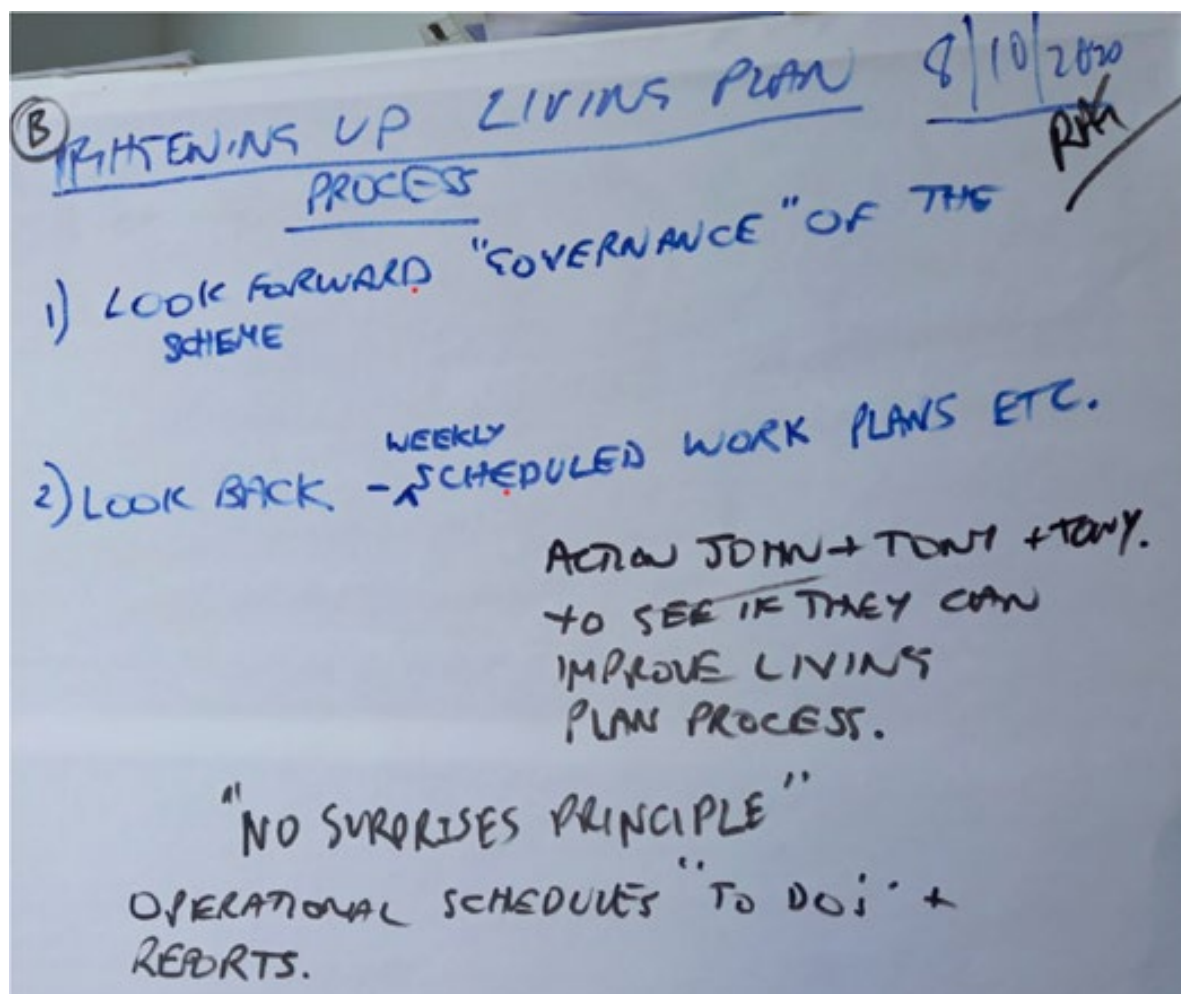 B
TIGHTENING UP LIVING PLAN 8/10/2020
PROCESS
1) LOOK FORWARD "GOVERNANCE" OF THE
SCHEME
WEEKLY
2) LOOK BACK - SCHEDULED WORK PLANS ETC.
ACTION JOHN + TONY + TONY.
TO SEE IF THEY CAN
IMPROVE LIVING
PLAN PROCESS.
"NO SURPRISES PRINCIPLE"
OPERATIONAL SCHEDULES "TO DO'S" +
REPORTS.